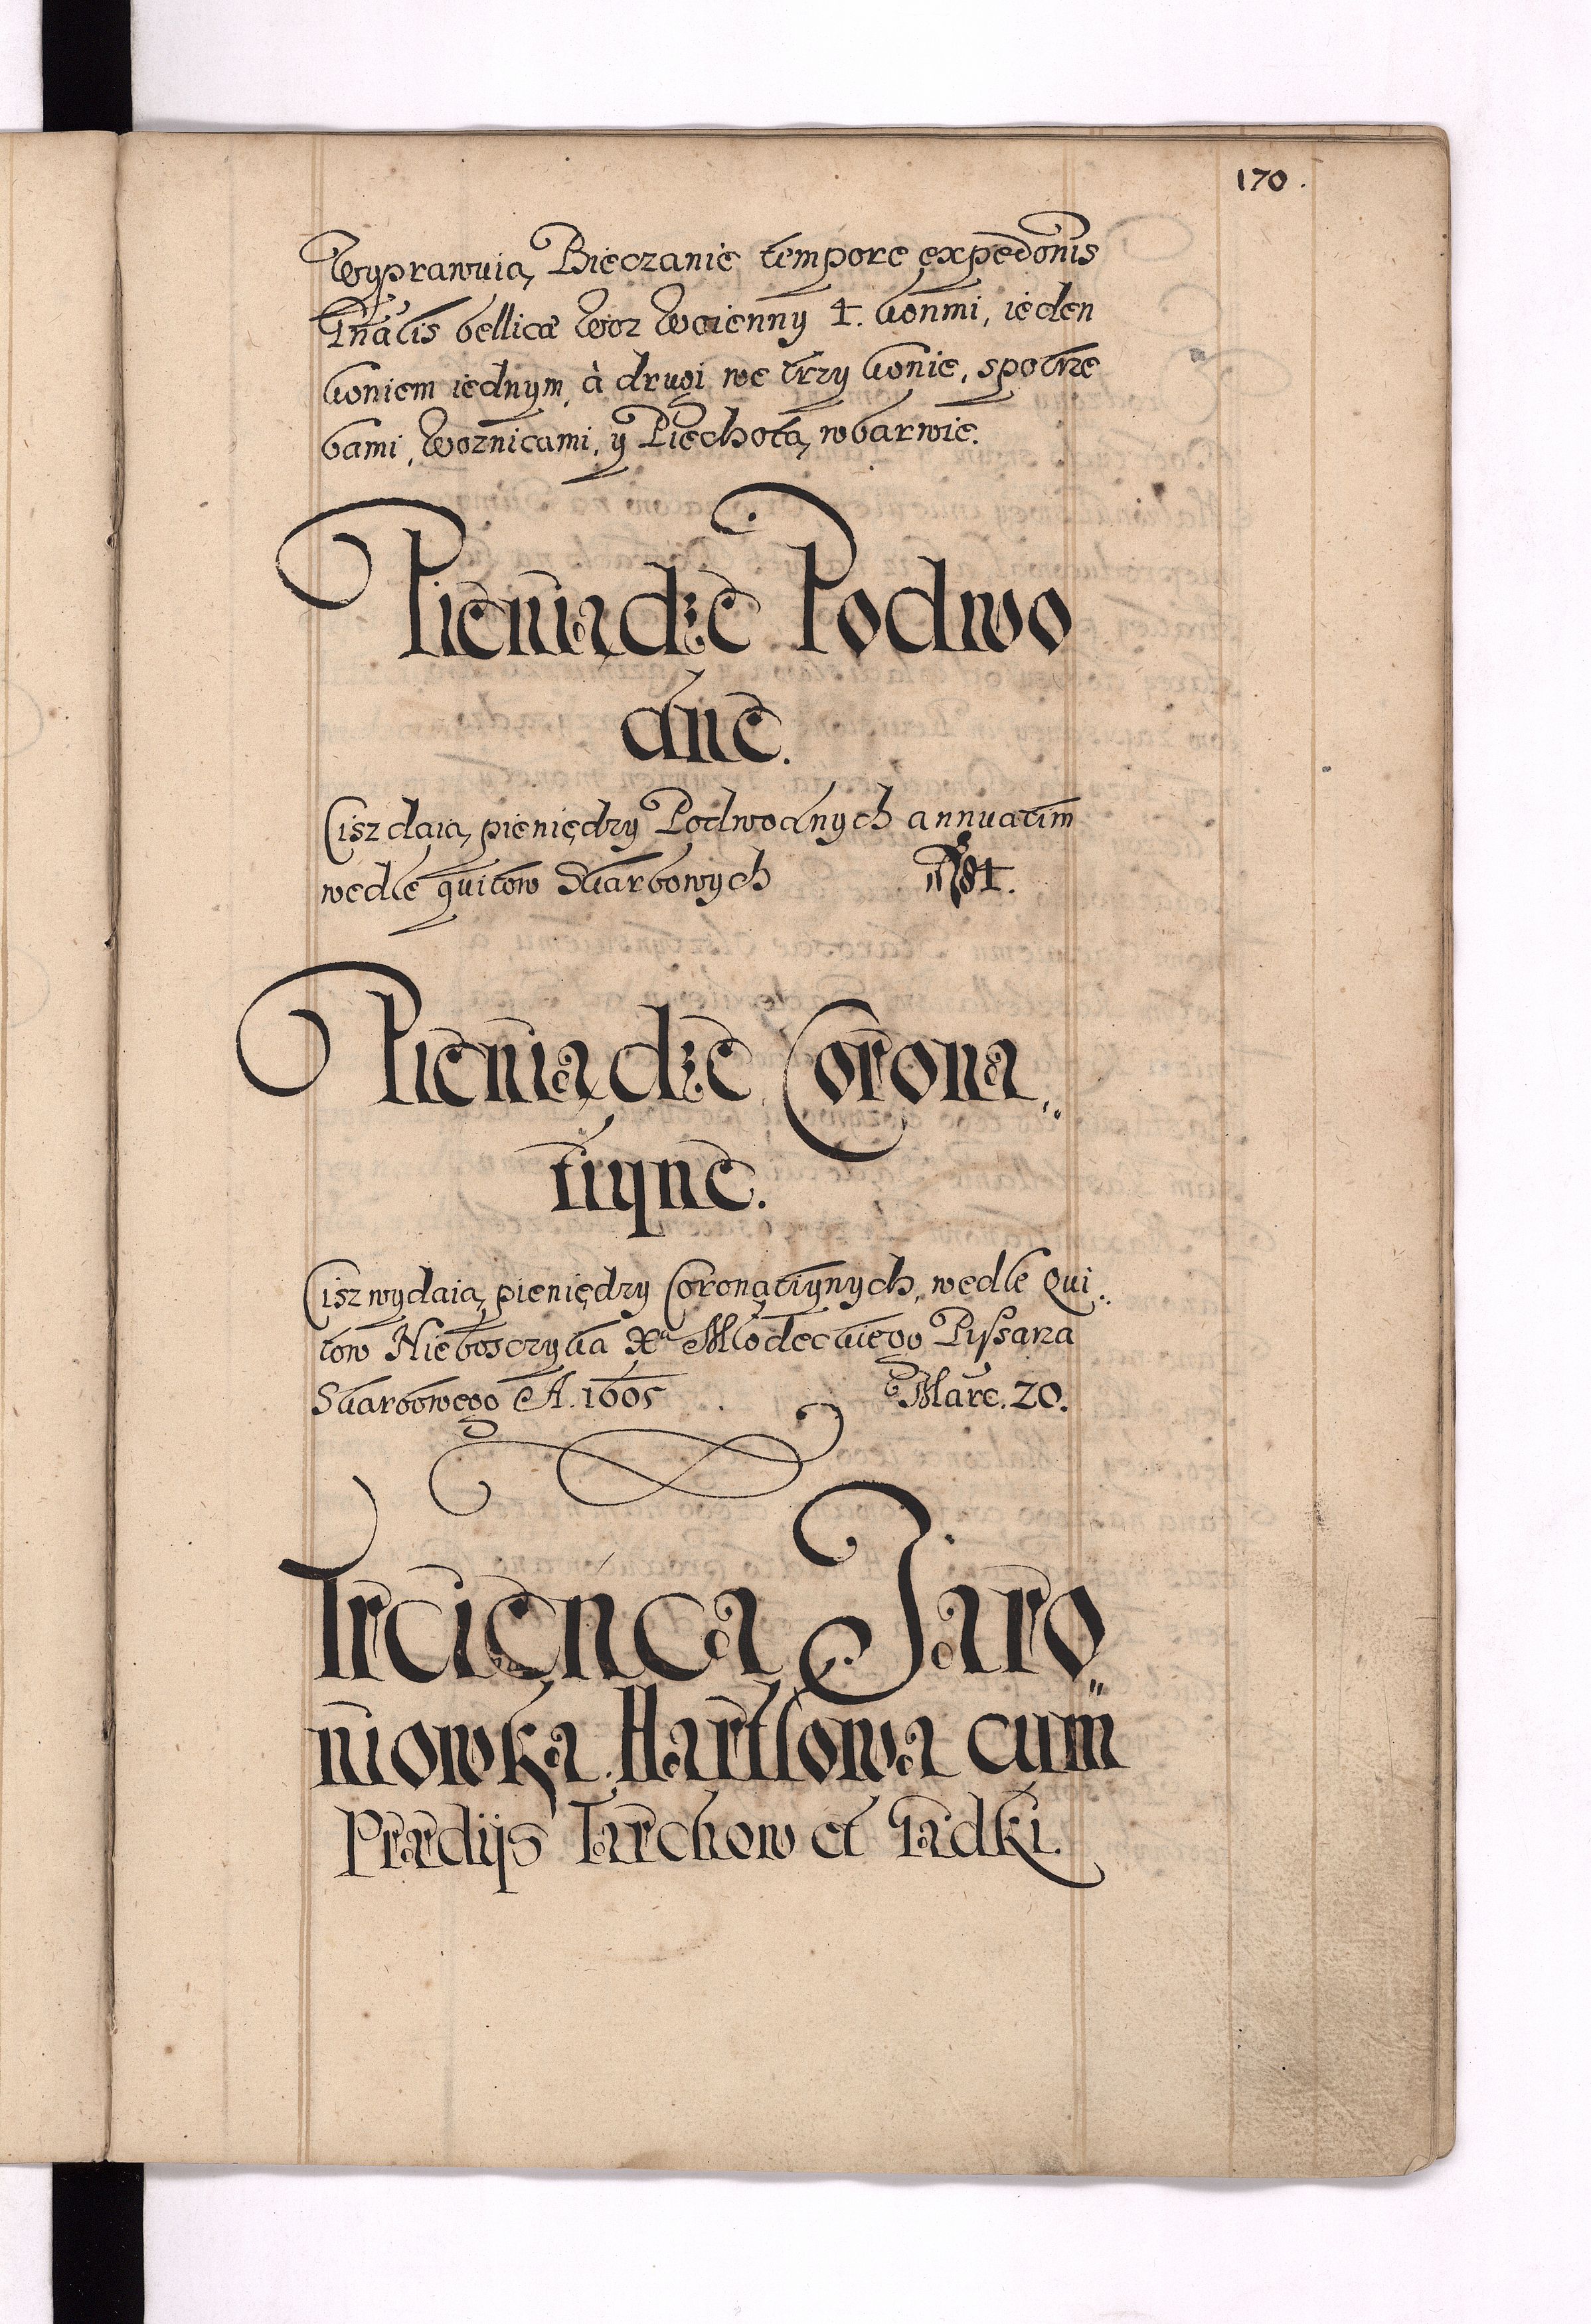 170.
Wyprawuią Bieczanie tempore expedonis
Gnalis bellicæ Woz Woienny 4. konmi, ieden
koniem iednym, à drugi we trzy konie, spotrze
bami, Woznicami, y Piechotą wbarwie.
Pieniądze Podwo
dne.
Cisz daią pieniędzy Podwodnych annuatim
wedle quitow Skarbowych
Pieniądze Corona„
tiyne.
Cisz wydaią pieniędzy Coronatiynych, wedle Qui„
tow Nieboszczyka Xa Młodeckiego Pissarza
Skarbowego A. 1605 Marc. 20.
Trcienca Jaro„
niowka. Hartlowa cum
Prædijs Tarchow et Gadki.